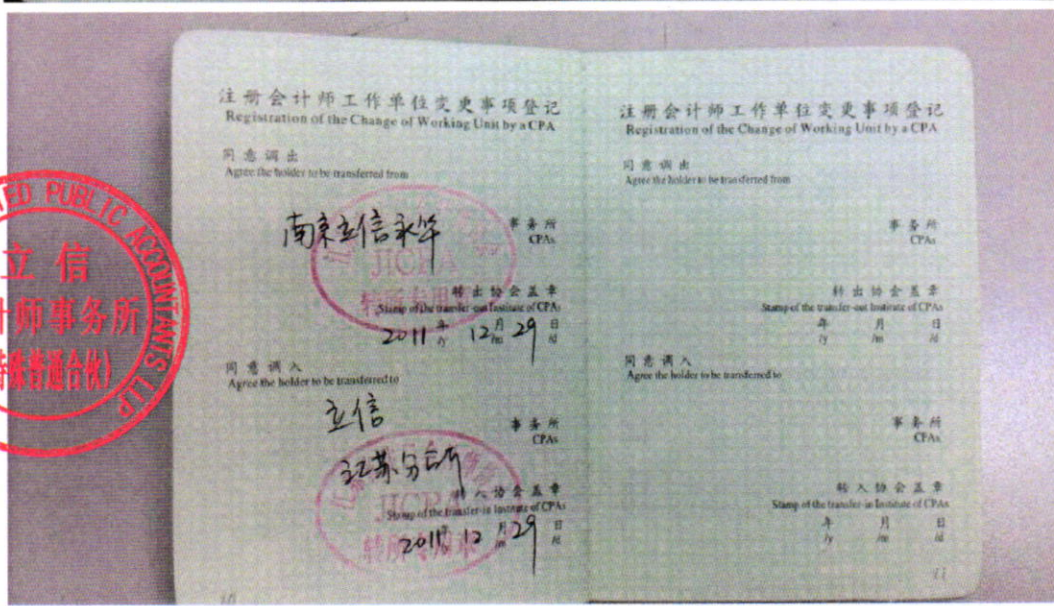 注册会计师工作单位变更事项登记
Registration of the Change of Working Unit by a CPA
同意调出
Agree the holder to be transferred from
南京立信永华
事务所
CPAs
JICPA
转所专用章
转出协会盖章
Stamp of the transfer-out Institute of CPAs
2011年 12月 29日
/y /m /d
同意调入
Agree the holder to be transferred to
立信
江苏分所
事务所
CPAs
JICPA
转所专用章
转入协会盖章
Stamp of the transfer-in Institute of CPAs
2011 12月 29日
/m /d
10
注册会计师工作单位变更事项登记
Registration of the Change of Working Unit by a CPA
同意调出
Agree the holder to be transferred from
事务所
CPAs
转出协会盖章
Stamp of the transfer-out Institute of CPAs
年 月 日
/y /m /d
同意调入
Agree the holder to be transferred to
事务所
CPAs
转入协会盖章
Stamp of the transfer-in Institute of CPAs
年 月 日
/y /m /d
11
PUBLIC ACCOUNTANTS LLP
立信
计师事务所
特殊普通合伙)